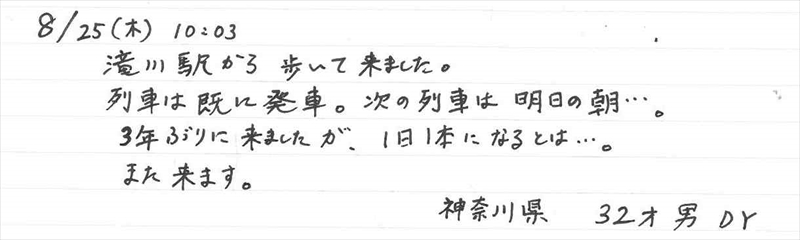 8/25(木) 10:03
滝川駅から 歩いて来ました。
列車は既に発車。次の列車は 明日の朝…。
3年ぶりに来ましたが、1日1本になるとは…。
また来ます。
神奈川県 32才 男 DY